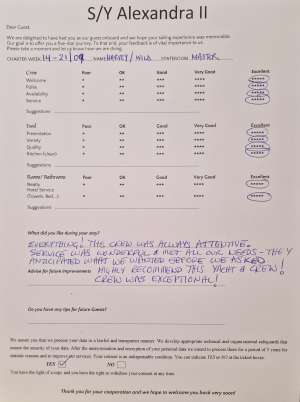 S/Y Alexandra II
Dear Guest,
We are delighted to have had you as our guest onboard and we hope your sailing experience was memorable.
Our goal is to offer you a five-star journey. To that end, your feedback is of vital importance to us.
Please take a moment and let us know how we did.
CHARTER WEEK: 14 - 21/09 NAME: HARVEY / WILD POSITION: MASTER
Crew Poor OK Good Very Good Excellent
Welcome * ** *** **** *****
Polite * ** *** **** *****
Availability * ** *** **** *****
Service * ** *** **** *****
Suggestions
Food Poor OK Good Very Good Excellent
Presentation * ** *** **** *****
Variety * ** *** **** *****
Quality * ** *** **** *****
* ** *** **** *****
Suggestions
Rooms/ Bathrooms Poor OK Good Very Good Excellent
* ** *** **** *****
Hotel Service * ** *** **** *****
(Towels, Bed...)
Suggestions
What did you like during your stay?
EVERYTHING! THE CREW WAS ALWAYS ATTENTIVE.
SERVICE WAS WONDERFUL & MET ALL OUR NEEDS - THEY
ANTICIPATED WHAT WE WANTED BEFORE WE ASKED!
Advise for future improvements HIGHLY RECOMMEND THIS YACHT & CREW!
CREW WAS EXCEPTIONAL!
Do you have any tips for future Guests?
We assure you that we process your data in a lawful and transparent manner. We develop appropriate technical and organisational safeguards that
ensure the security of your data. After the anonymization and encryption of your personal data we intend to process them for a period of 5 years for
statistic reasons and to improve our services. Your consent is an indispensable condition. You can indicate YES or NO in the ticked boxes:
YES NO
You have the right of access and you have the right to withdraw your consent at any time.
Thank you for your cooperation and we hope to welcome you back very soon!